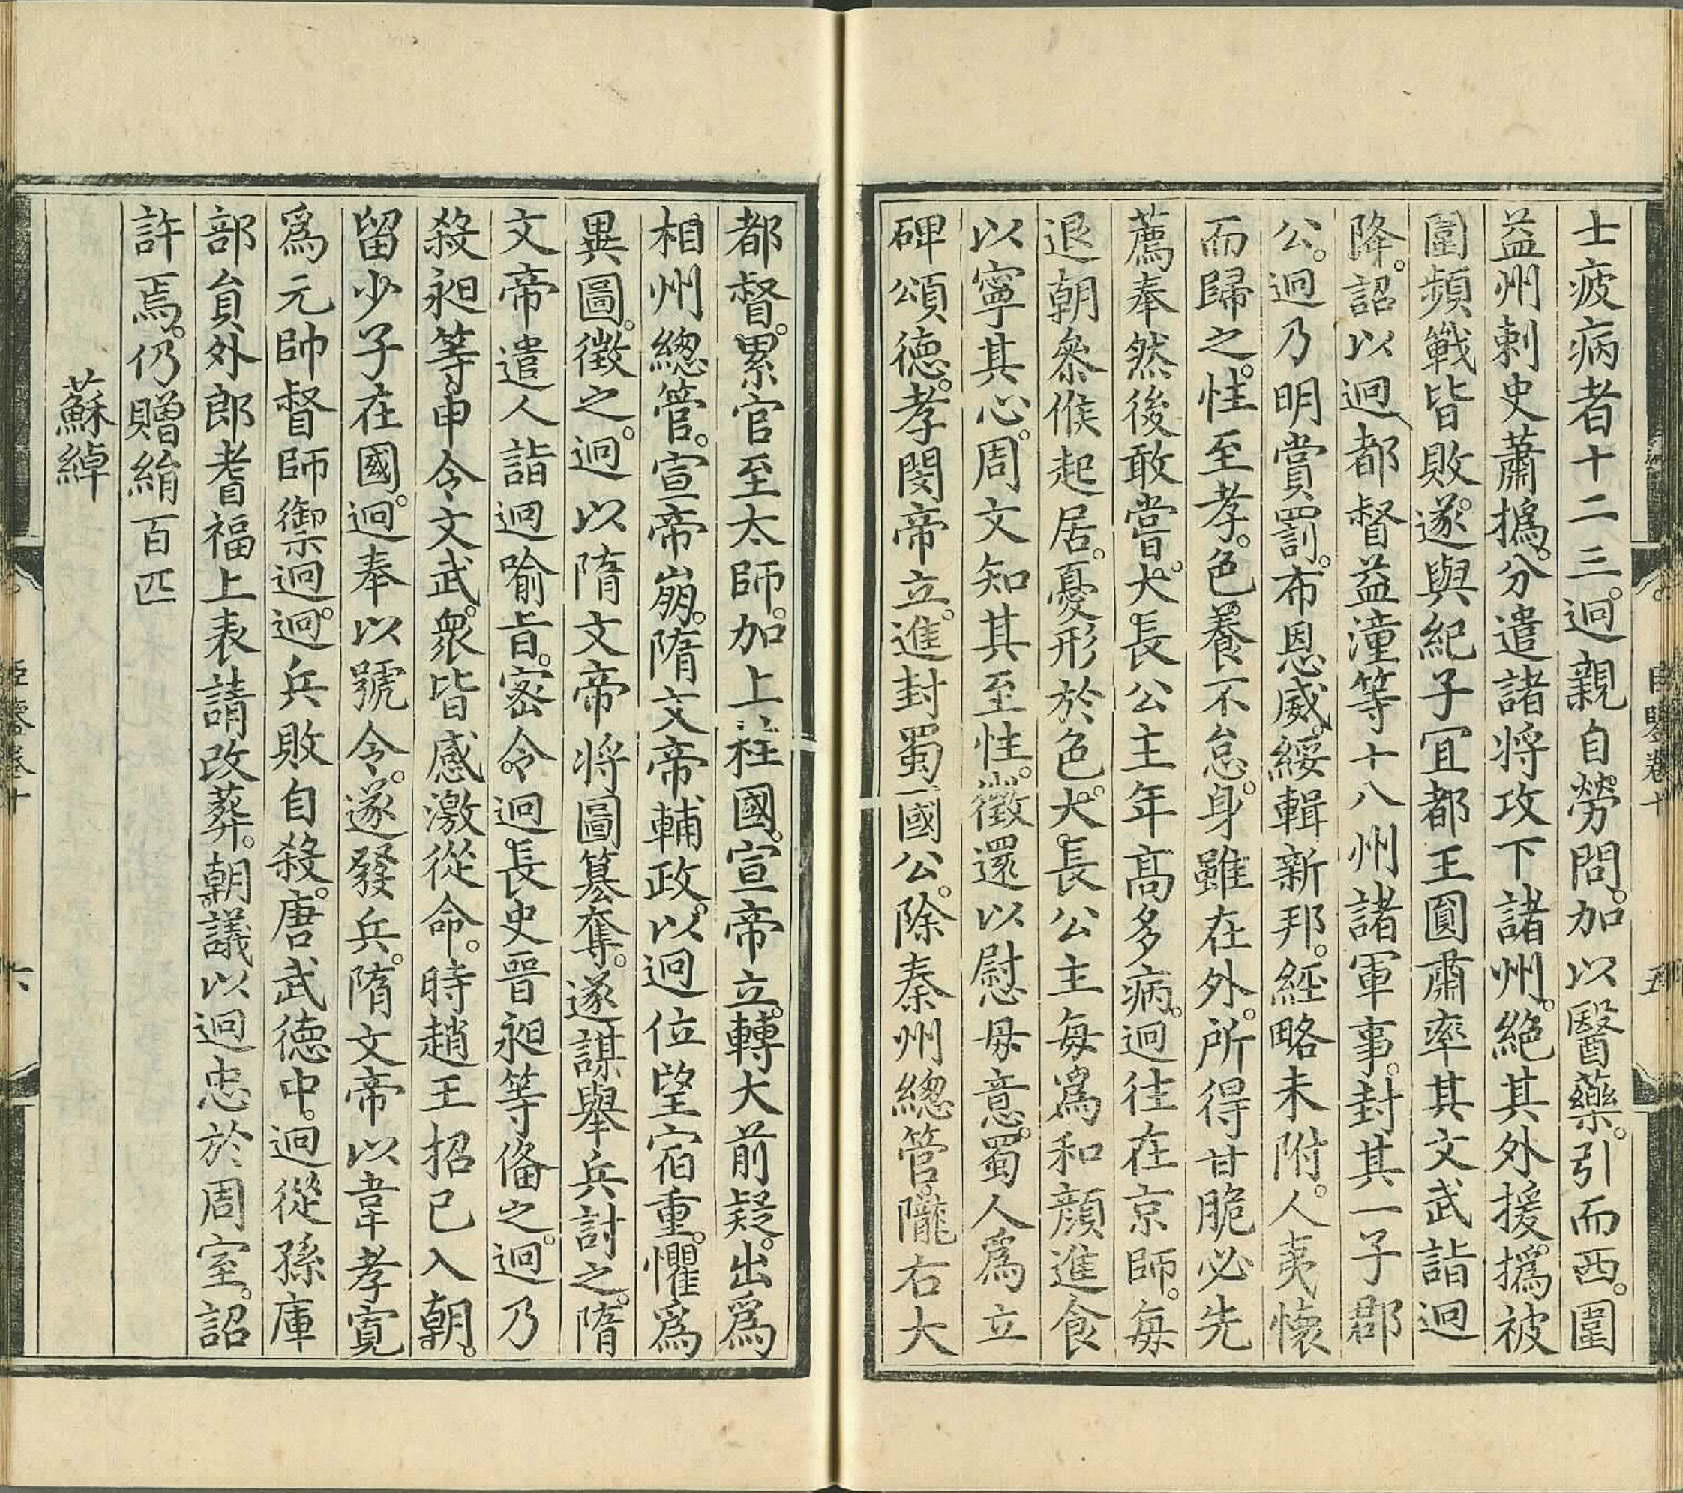 士疲病者十二三。迥親自勞問。加以醫藥。引而西。圍
益州刺史蕭撝。分遣諸将攻下諸州。絶其外援。撝被
圍頻戰皆敗。遂與紀子冝都王圓肅率其文武詣迥
降。詔以迥都督益潼等十八州諸軍事。封其一子郡
公。迥乃明賞罰。布恩威。綏輯新邦。經略未附。人夷懐
而歸之。性至孝。色養不怠。身雖在外。所得甘脆必先
薦奉然後敢嘗。犬長公主年高多病。迥往在京師。毎
退朝叅候起居。憂形於色。犬長公主毎爲和顔進食
以寧其心。周文知其至性。徴還以慰毋意。蜀人爲立
碑頌德。孝閔帝立。進封蜀國公。除秦州總管。隴右大
都督。累官至太師。加上柱國。宣帝立。轉大前疑。出爲
相州總管。宣帝崩。隋文帝輔政。以迥位望宿重。懼爲
異圖。徴之。迥以隋文帝将圖簒奪。遂謀舉兵討之。隋
文帝遣人詣迥喻旨。密令迥長史晉昶等俻之。迥乃
殺昶等。申令文武。衆皆感激從命。時趙王招已入朝。
留少子在國。迥奉以號令。遂發兵。隋文帝以韋孝寛
爲元帥督師御迥。迥兵敗自殺。唐武德中。迥從孫庫
部員外郎耆福上表請改葬。朝議以迥忠於周室。詔
許焉。仍贈絹百匹
蘇綽